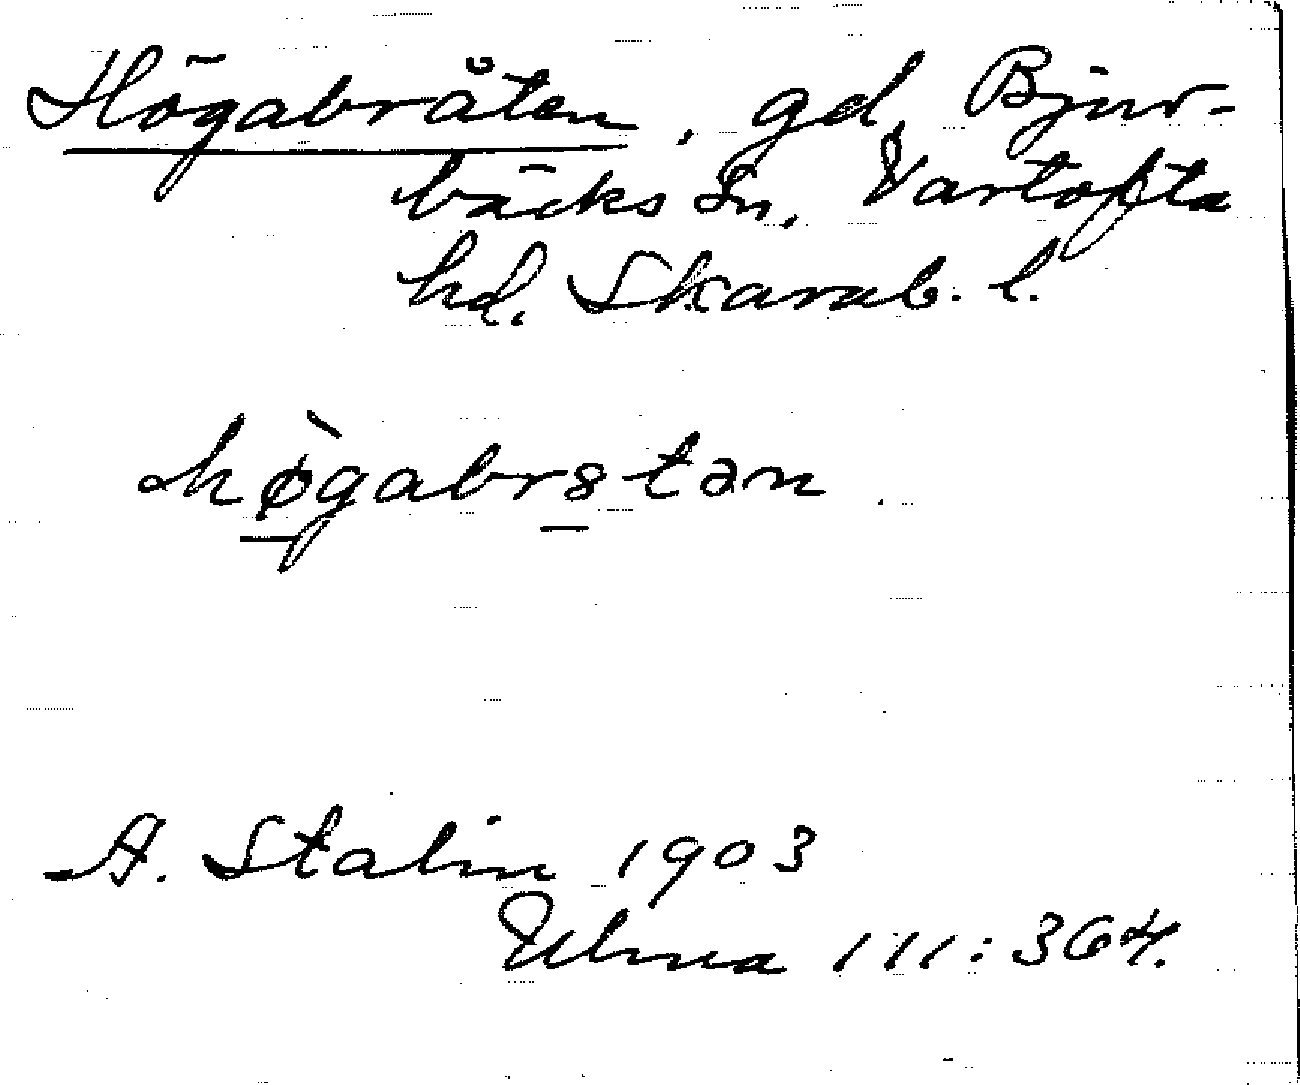 Högabråten, gd, Bjur-
bäcks sn, Vartofta
hd, Skarab. l.
hø̀gabr8tən
A. Stalin 1903
Ulma 111:364.